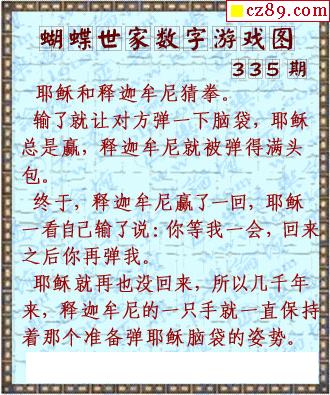 cz89.com
蝴蝶世家数字游戏图
335期
耶稣和释迦牟尼猜拳。
输了就让对方弹一下脑袋，耶稣
总是赢，释迦牟尼就被弹得满头
包。
终于，释迦牟尼赢了一回，耶稣
一看自己输了说：你等我一会，回来
之后你再弹我。
耶稣就再也没回来，所以几千年
来，释迦牟尼的一只手就一直保持
着那个准备弹耶稣脑袋的姿势。